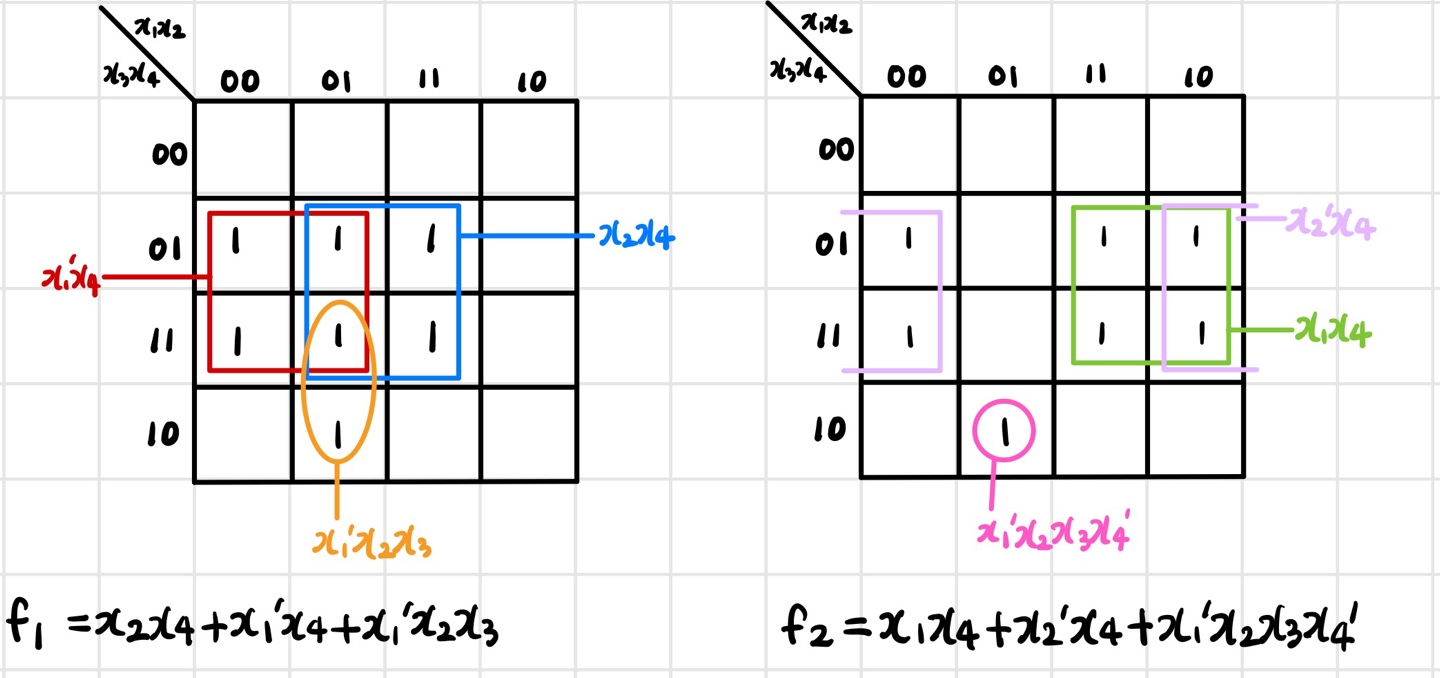 x₁x₂
x₃x₄
00 01 11 10
00
01 1 1 1
x₂x₄
x₁'x₄
11 1 1 1
10 1
x₁'x₂x₃
f₁ = x₂x₄ + x₁'x₄ + x₁'x₂x₃
x₁x₂
x₃x₄
00 01 11 10
00
01 1 1 1
x₂'x₄
11 1 1 1
x₁x₄
10 1
x₁'x₂x₃x₄'
f₂ = x₁x₄ + x₂'x₄ + x₁'x₂x₃x₄'